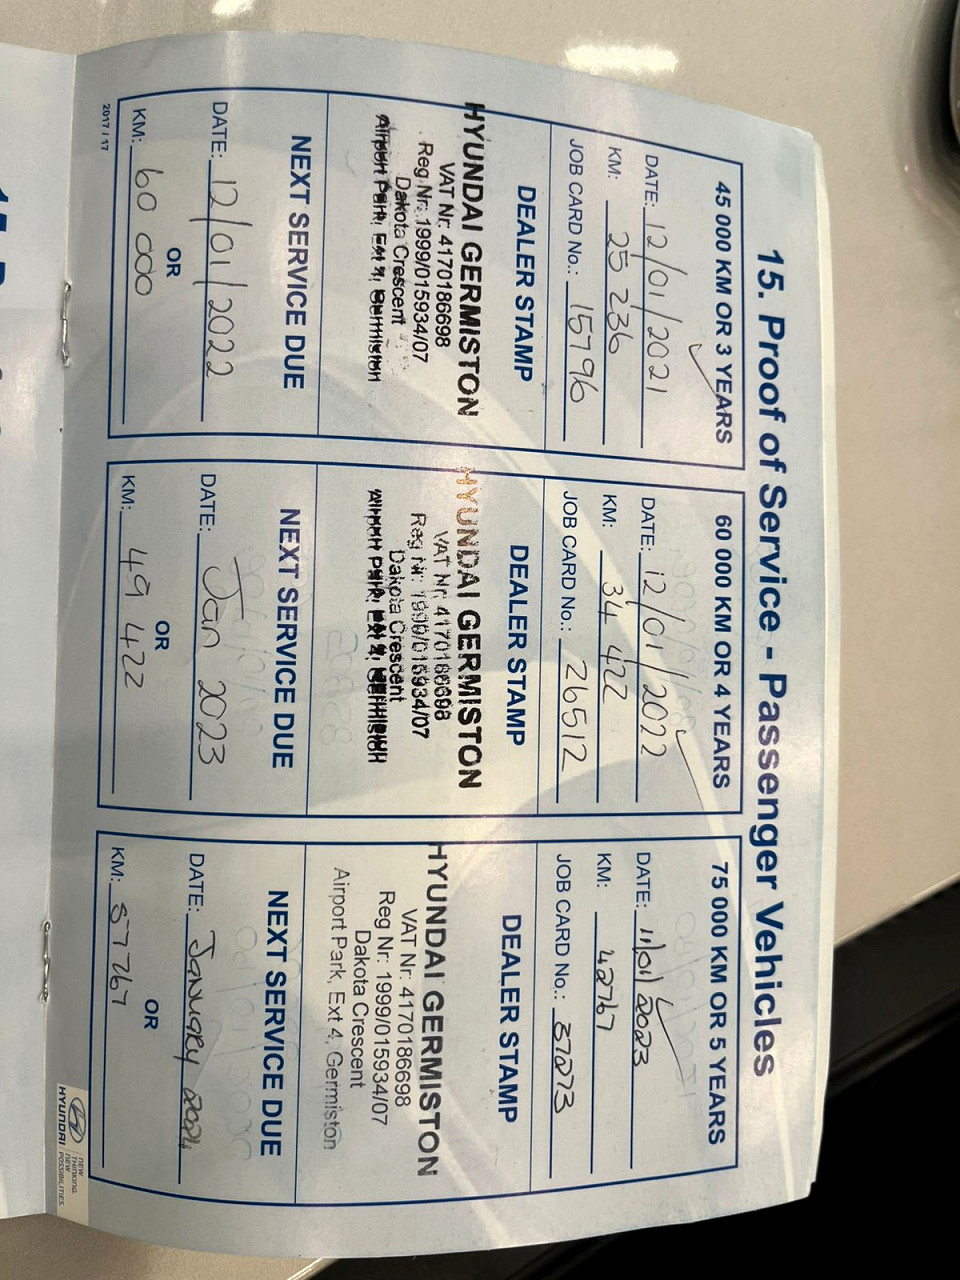 15. Proof of Service - Passenger Vehicles
45 000 KM OR 3 YEARS
DATE: 12/01/2021
KM: 25 236
JOB CARD No.: 15796
DEALER STAMP
HYUNDAI GERMISTON
VAT Nr: 4170186698
Reg Nr: 1999/015934/07
Dakota Crescent
Airport Park, Ext 4, Germiston
NEXT SERVICE DUE
DATE: 12/01/2022
OR
KM: 60 000
2017 / 17
60 000 KM OR 4 YEARS
DATE: 12/01/2022
KM: 34 422
JOB CARD No.: 26512
DEALER STAMP
HYUNDAI GERMISTON
VAT Nr: 4170186698
Reg Nr: 1999/015934/07
Dakota Crescent
Airport Park, Ext 4, Germiston
NEXT SERVICE DUE
DATE: Jan 2023
OR
KM: 49 422
75 000 KM OR 5 YEARS
DATE: 11/01/2023
KM: 42767
JOB CARD No.: 37273
DEALER STAMP
HYUNDAI GERMISTON
VAT Nr: 4170186698
Reg Nr: 1999/015934/07
Dakota Crescent
Airport Park, Ext 4, Germiston
NEXT SERVICE DUE
DATE: January 2024
OR
KM: 57767
HYUNDAI
NEW
THINKING.
NEW
POSSIBILITIES.